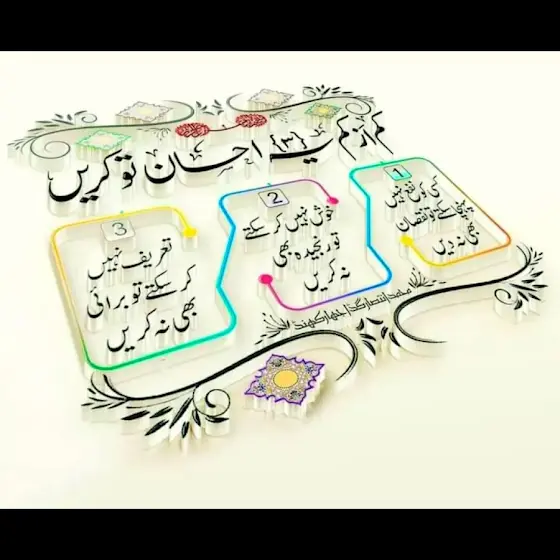 کم از کم یہ {۳} احسان تو کریں
1
کسی کو نفع نہیں
پہنچا سکتے تو نقصان
بھی نہ دیں
2
خوش نہیں کر سکتے
تو رنجیدہ بھی
نہ کریں
3
تخریف نہیں
کر سکتے تو برائی
بھی نہ کریں
محمد انتصار گڈا جھارکھنڈ